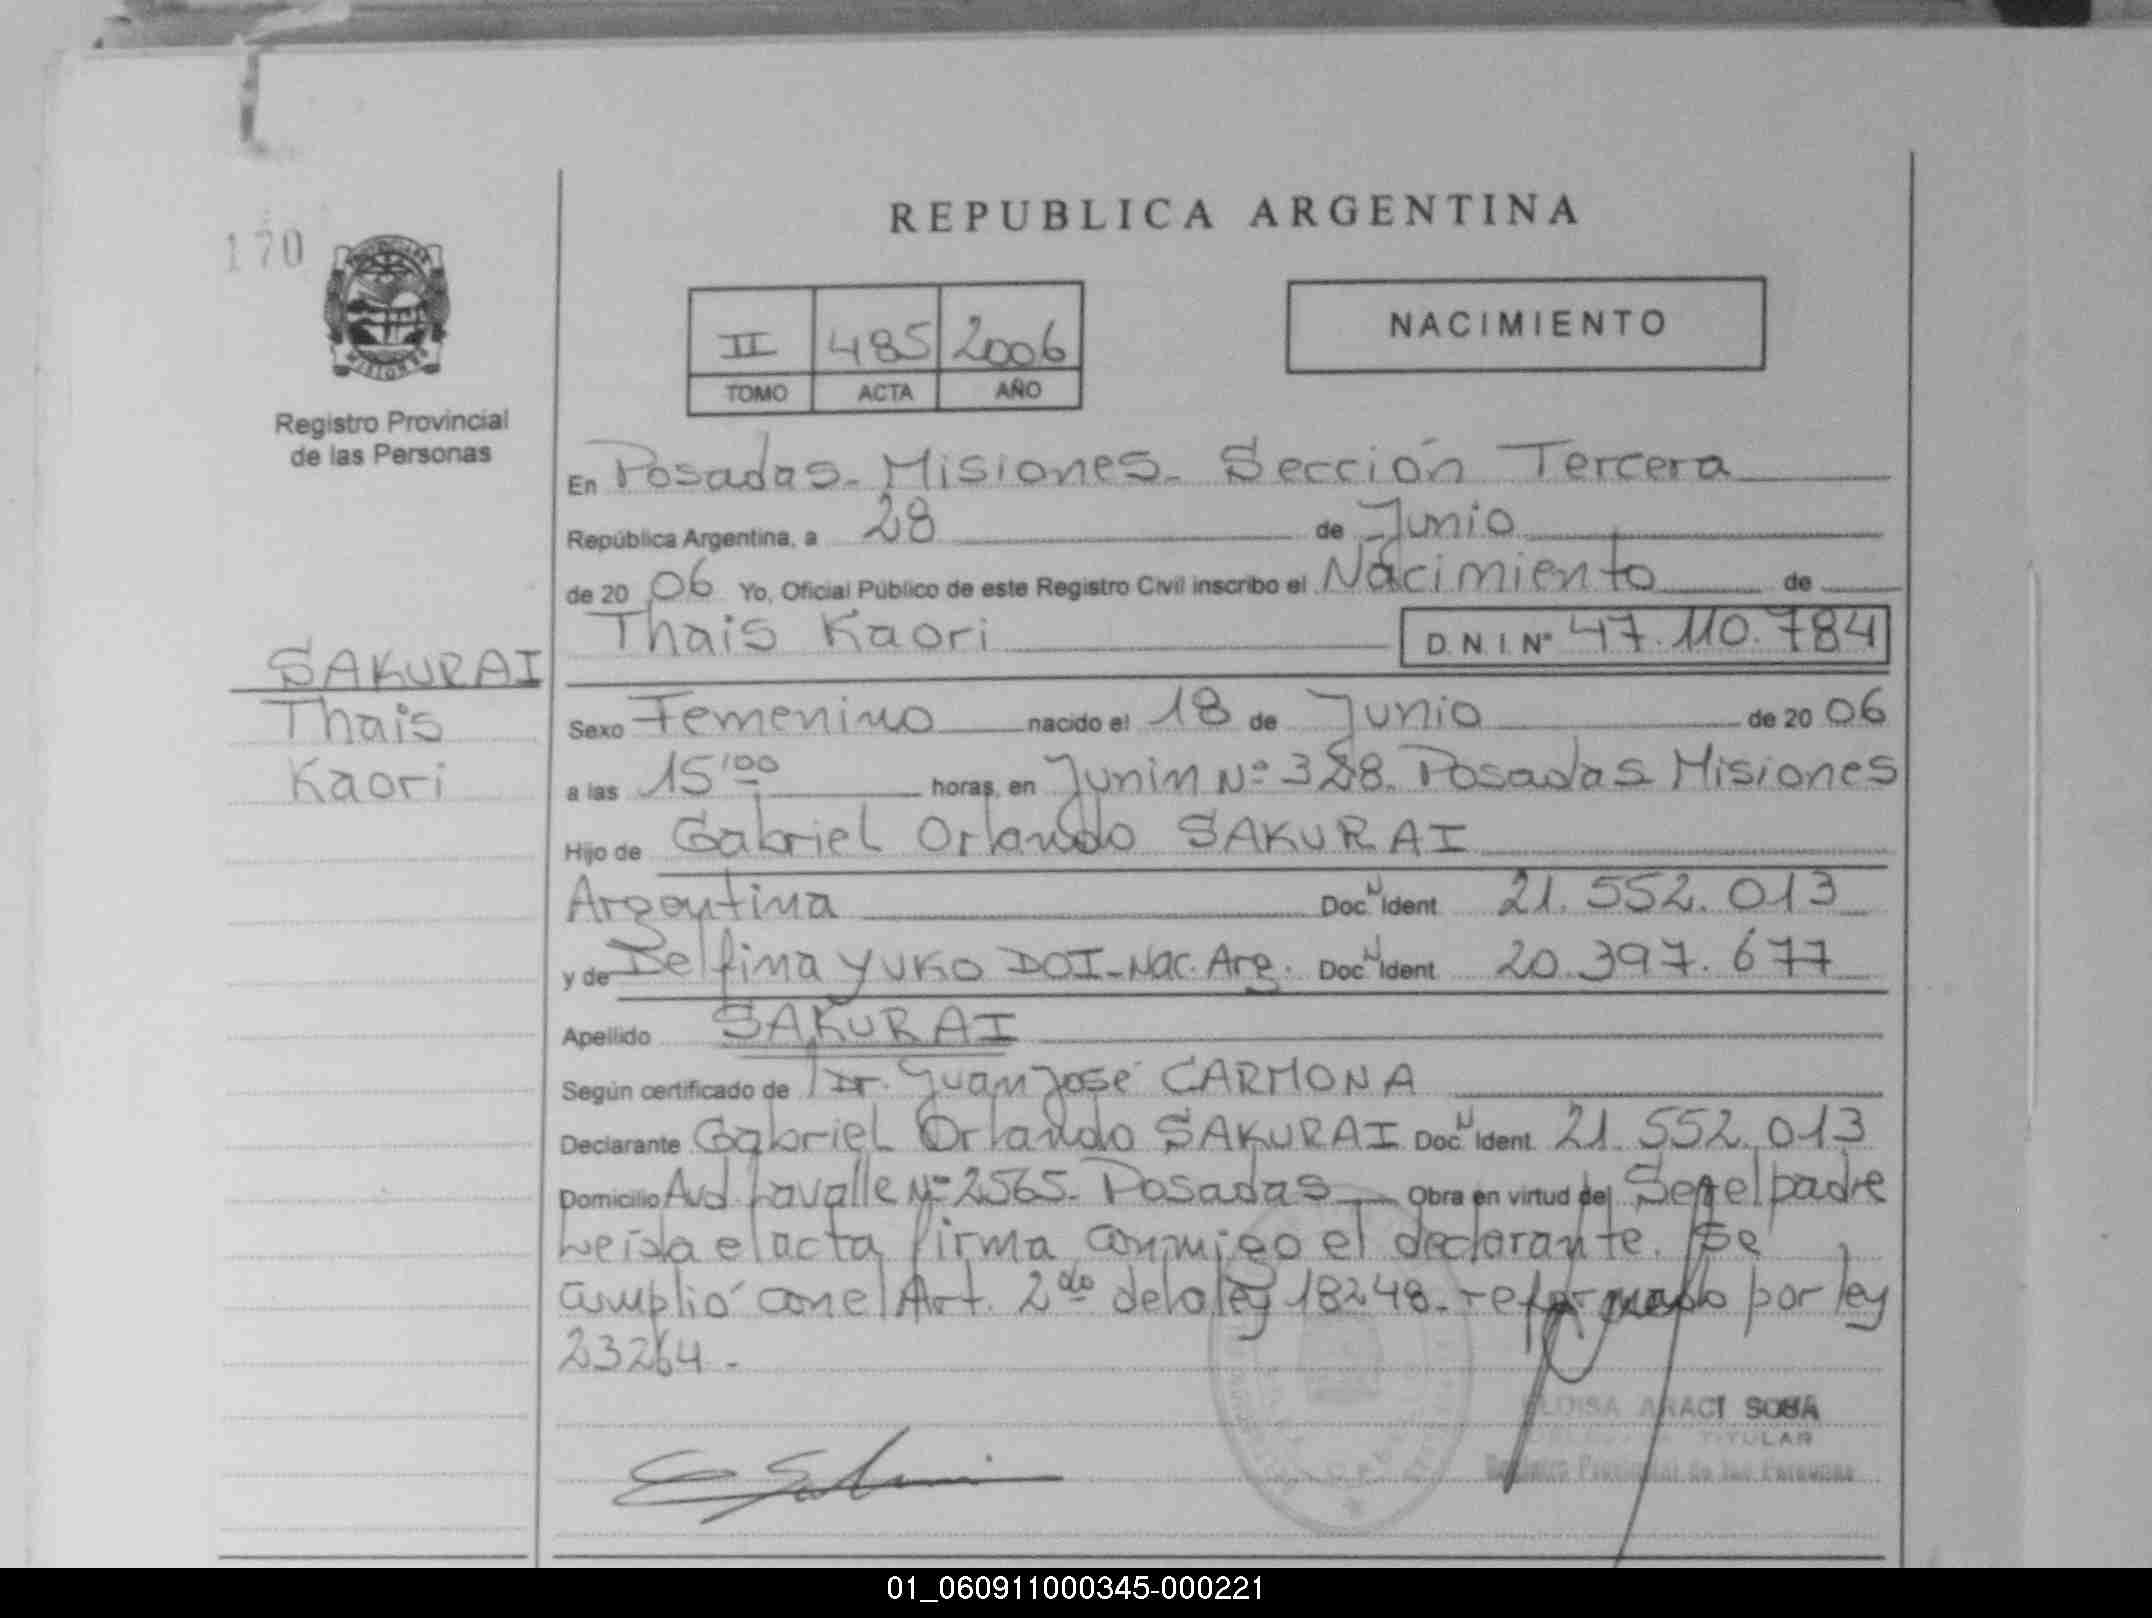 REPUBLICA ARGENTINA
170
II 485 2006
TOMO ACTA AÑO
NACIMIENTO
Registro Provincial
de las Personas
En Posadas - Misiones - Sección Tercera
República Argentina, a 28 de Junio
de 20 06 Yo, Oficial Público de este Registro Civil inscribo el Nacimiento de
Thais Kaori D.N.I. Nº 47.110.784
SAKURAI
Thais
Kaori
Sexo Femenino nacido el 18 de Junio de 20 06
a las 15'00 horas, en Junin Nº 328. Posadas Misiones
Hijo de Gabriel Orlando SAKURAI
Argentina Doc. N Ident 21.552.013
y de Delfina YUKO DOI - Nac. Arg. Doc. N Ident 20.397.677
Apellido SAKURAI
Según certificado de Dr. Juan José CARMONA
Declarante Gabriel Orlando SAKURAI Doc. N Ident. 21.552.013
Domicilio Avd. Lavalle Nº 2565 - Posadas Obra en virtud de Ser el padre
Leída el acta firma conmigo el declarante. Se
cumplió con el Art. 2do de la ley 18248 - reformado por ley
23264 -
ELOISA ARACI SOSA
TITULAR
Registro Provincial de las Personas
01_060911000345-000221